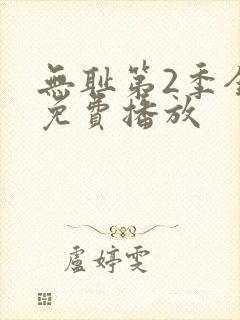 無耻第2季全
免費播放
盧婷雯